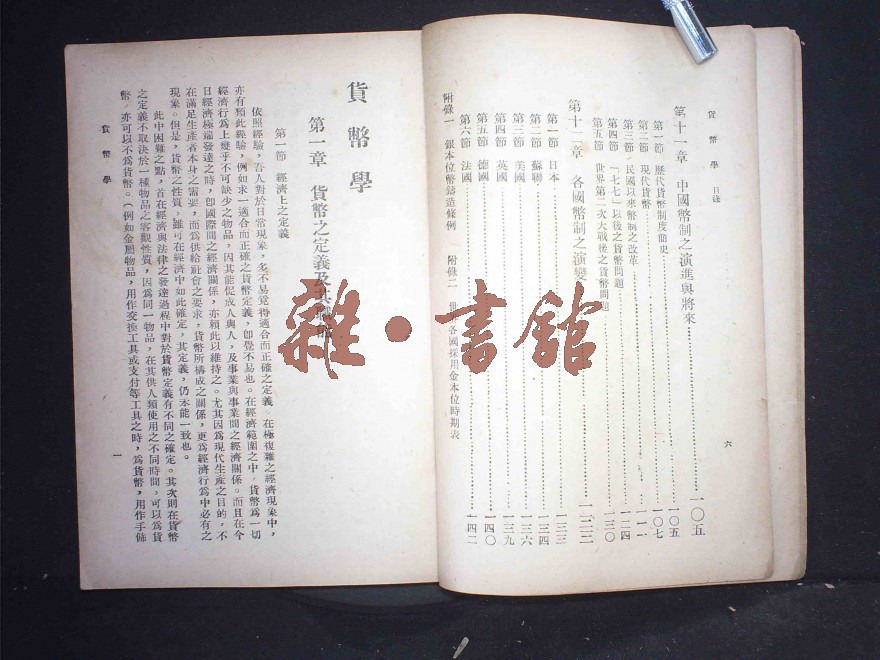 貨幣學 目錄
第十一章 中國幣制之演進與將來 一〇五
第一節 歷代貨幣制度簡史 一〇五
第二節 現代貨幣 一〇七
第三節 民國以來幣制之改革 一一一
第四節 「七七」以後之貨幣問題 一二四
第五節 世界第二次大戰後之貨幣問題 一三〇
第十二章 各國幣制之演變 一三三
第一節 日本 一三三
第二節 蘇聯 一三四
第三節 美國 一三六
第四節 英國 一三九
第五節 德國 一四〇
第六節 法國 一四二
附錄一 銀本位幣鑄造條例 附錄二 世 各國採用金本位時期表
六
貨幣學
第一章 貨幣之定義及其
第一節 經濟上之定義
依照經驗,吾人對於日常現象,多不易覓得適合而正確之定義。在極複雜之經濟現象中,
亦有類此經驗,例如求一適合而正確之貨幣定義,卽覺不易也。在經濟範圍之中,貨幣爲一切
經濟行爲上幾乎不可缺少之物品,因其能促成人與人,及事業與事業間之經濟關係。而且在今
日經濟極端發達之時,卽國際間之經濟關係,亦賴此以維持之。尤其因爲現代生產之目的,不
在滿足生產者本身之需要,而爲供給社會之要求,貨幣所構成之關係,更爲經濟行爲中必有之
現象。但是,貨幣之性質,雖可在經濟中如此確定,其定義,仍未能一致也。
此中困難之點,首在經濟與法律之發達過程中對於貨幣定義有不同之確定。其次則在貨幣
之定義不取決於一種物品之客觀性質,因爲同一物品,在其供人類使用之不同時間,可以爲貨
幣,亦可以不爲貨幣。(例如金屬物品,用作交換工具或支付等工具之時,爲貨幣,用作手飾
貨幣學
一
雜·書館